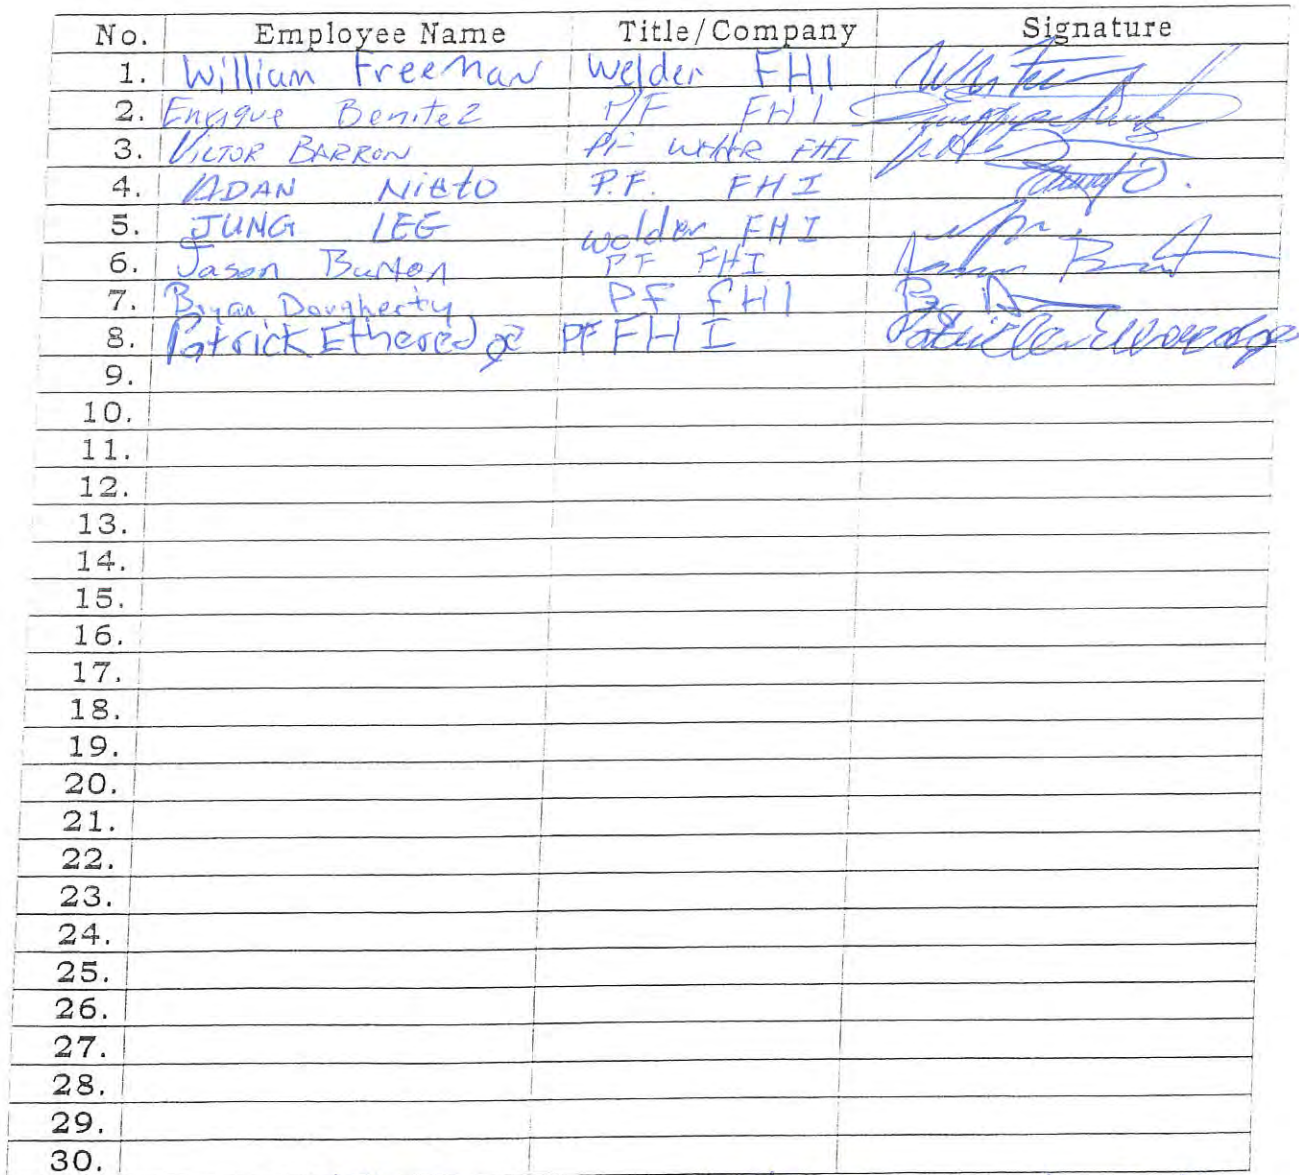 No. Employee Name Title/Company Signature
1. William Freeman Welder FHI
2. Enrique Benitez P/F FHI
3. VICTOR BARRON FHI
4. ADAN Nieto P.F. FHI
5. JUNG LEE welder FHI
6. Jason Burton PF FHI
7. Bryan Dougherty PF FHI
8. Patrick Etheredge PF FHI
9.
10.
11.
12.
13.
14.
15.
16.
17.
18.
19.
20.
21.
22.
23.
24.
25.
26.
27.
28.
29.
30.